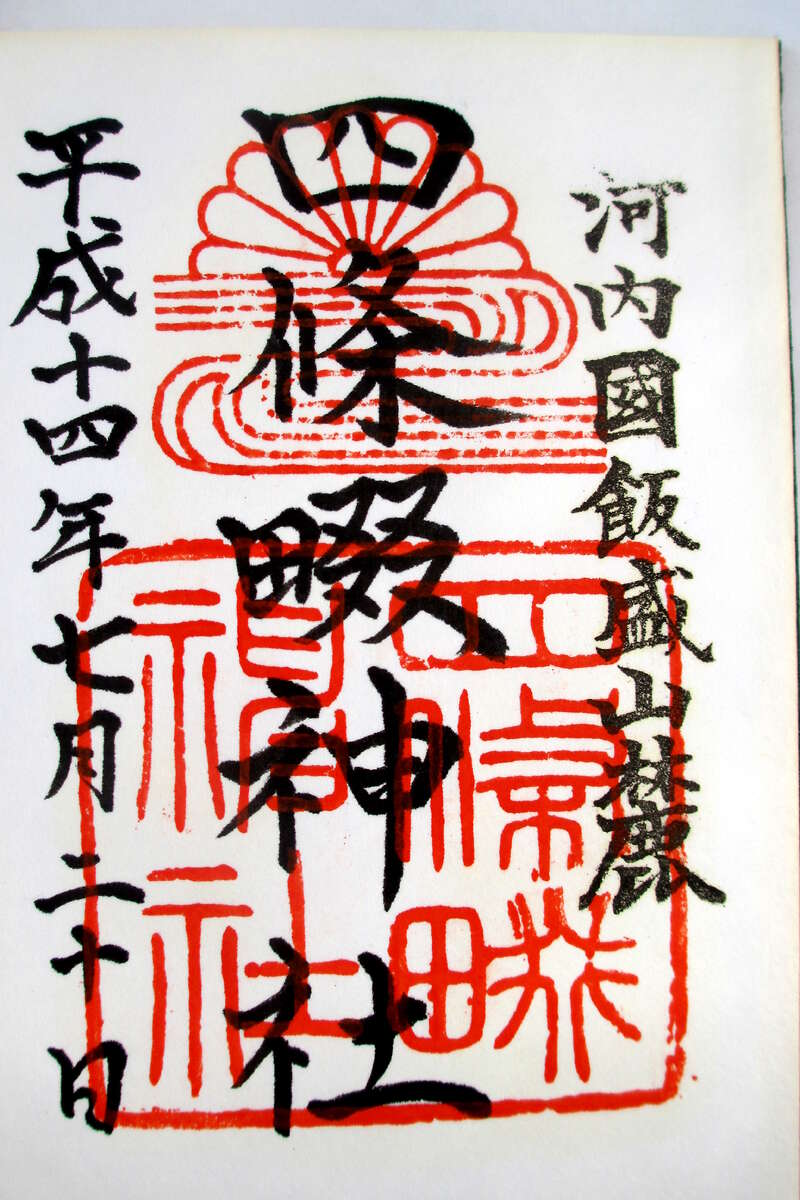 河内國飯盛山麓
四條畷神社
平成十四年七月二十日